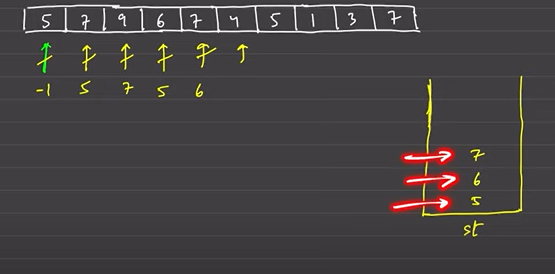 5 7 9 6 7 4 5 1 3 7
-1 5 7 5 6
7
6
5
st